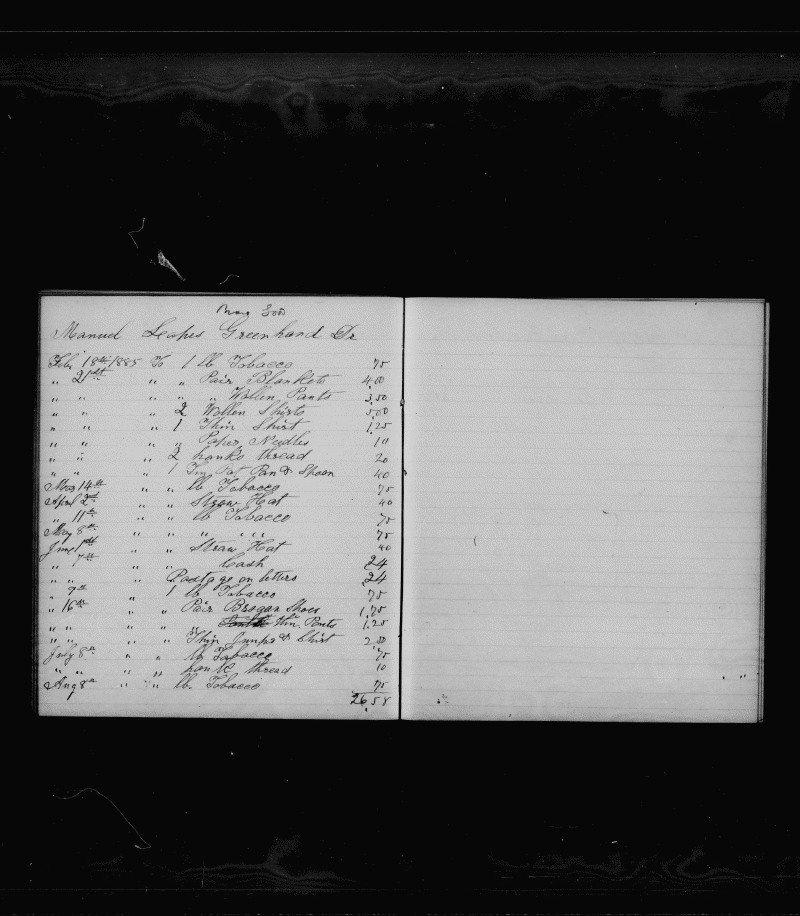 Manuel Leapes Greenhand Dr
Feby 18th 1885 To 1 lb Tobacco 75
" 21st " " Pair Blankets 4,00
" " " " " Wollen Pants 3,50
" " " 2 Wollen Shirts 5,00
" " " 1 Thin Shirt 1,25
" " " " Paper Needles 10
" " " 2 hanks thread 20
" " " 1 Tin Pot Pan & Spoon 40
Mar 14th " " lb Tobacco 75
April 2d " " Straw Hat 40
" 11th " " lb Tobacco 75
May 8th " " " " " 75
June 1st " " Straw Hat 40
" 7th " Cash 24
" " " Postage on letters 24
" 9th " 1 lb Tobacco 75
" 16th " " Pair Brogan Shoes 1,75
" " " " " Thin Pants 1,25
" " " " Thin Jumper & Shirt 2,00
July 8th " " lb Tobacco 75
" " " " hank thread 10
Aug 8th " " lb. Tobacco 75
26,58